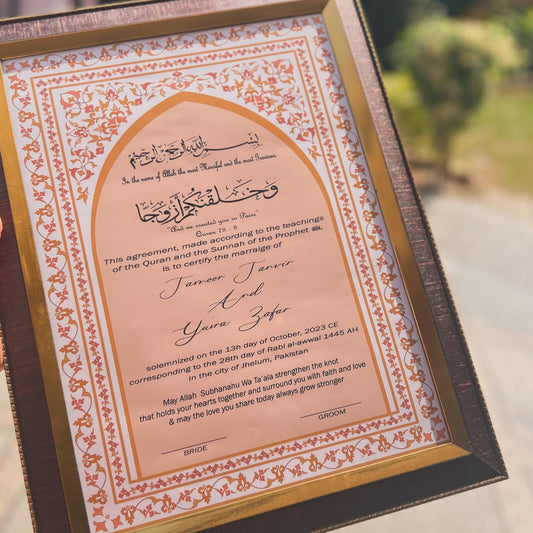 بسم الله الرحمن الرحيم
In the name of Allah the most Merciful and the most Gracious.
وخلقنكم أزوجا
"And we created you in Pairs"
Quran 78 - 8
This agreement, made according to the teachings
of the Quran and the Sunnah of the Prophet ﷺ
is to certify the marraige of
And
Yusra Zafar
solemnized on the 13h day of October, 2023 CE
corresponding to the 28th day of Rabi al-awwal 1445 AH
in the city of Jhelum, Pakistan
May Allah Subhanahu Wa Ta'ala strengthen the knot
that holds your hearts together and surround you with faith and love
& may the love you share today always grow stronger
BRIDE
GROOM